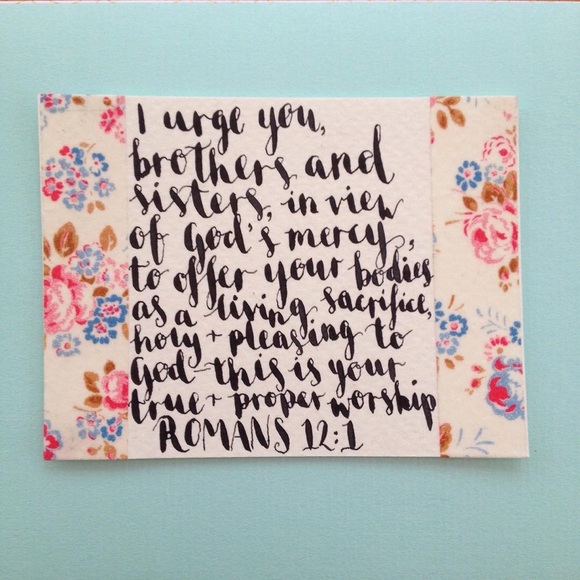 I urge you,
brothers and
sisters, in view
of God's mercy,
to offer your bodies
as a living sacrifice,
holy + pleasing to
God-this is your
true + proper worship
ROMANS 12:1